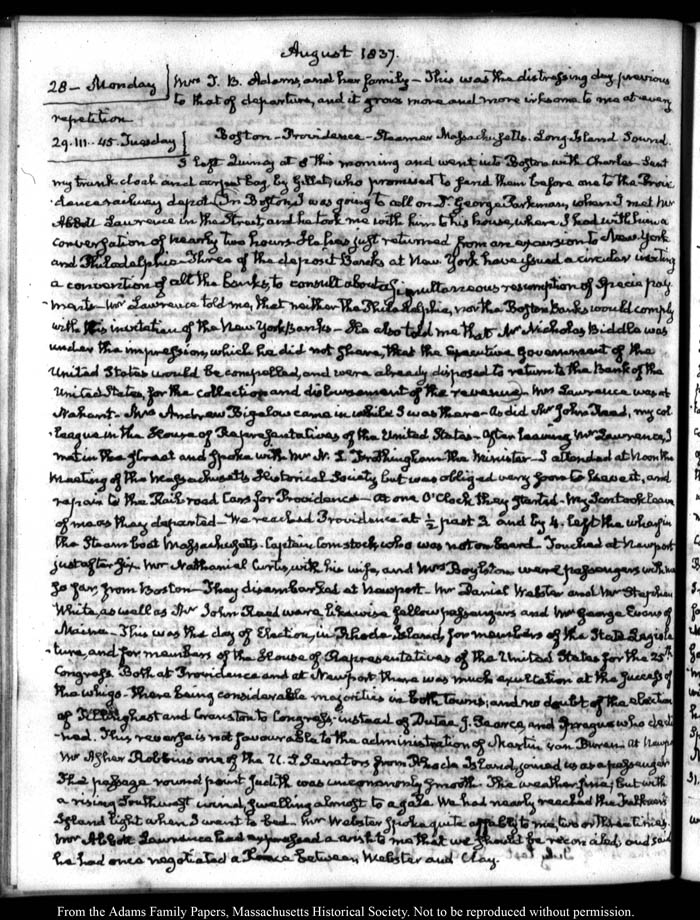 August 1837.
28 – Monday } Mrs T. B. Adams, and her family – This was the distressing day previous
to that of departure, and it grows more and more irksome to me at every
repetition
29. III.. 45. Tuesday { Boston – Providence – Steamer Massachusetts. Long Island Sound.
I left Quincy at 8 this morning and went into Boston with Charles – Sent
my trunk cloak and carpet bag, by Gillet, who promised to send them before one to the Provi-
-dence railway depot. In Boston, I was going to call on Dr George Parkman, when I met Mr
Abbott Lawrence in the Street, and he took me with him to his house, where I had with him a
conversation of nearly two hours. He has just returned from an excursion to New-York
and Philadelphia – Three of the deposit Banks at New York have issued a circular inviting
a convention of all the banks, to consult about a simultaneous resumption of specie pay
ments – Mr Lawrence told me, that neither the Philadelphia, nor the Boston Banks would comply
with this invitation of the New York Banks – He also told me that Mr Nicholas Biddle was
under the impression, which he did not share, that the Executive Government of the
United States would be compelled, and were already disposed to return to the Bank of the
United States, for the collection and disbursement of the revenue – Mrs Lawrence was at
Nahant – Mrs Andrew Bigelow came in while I was there – As did Mr John Reed, my col
-league in the House of Representatives of the United States – After leaving Mr Lawrence, I
met in the street and spoke with Mr N. L. Frothingham the Minister – I attended at Noon the
meeting of the Massachusetts Historical Society but was obliged very soon to leave it, and
repair to the Rail road Cars for Providence – At one O'Clock they started – My Son took leave
of me as they departed – We reached Providence at ½ past 3 and by 4. left the wharf in
the Steam boat Massachusetts. Captain Comstock, who was not on board. Touched at Newport
just after six Mr Nathaniel Curtis, with his wife, and Mrs Boylston were passengers with me
so far, from Boston – They disembarked at Newport – Mr Daniel Webster and Mr Stephen
White, as well as Mr John Reed were likewise fellow passengers and Mr George Evans of
Maine – This was the day of Election, in Rhode Island, for members of the State Legisla
-ture, and for members of the House of Representatives of the United States for the 25th
Congress. Both at Providence and at Newport there was much exultation at the success of
the whigs – there being considerable majorities in both towns; and no doubt of the election
of Tillinghast and Cranston to Congress, instead of Dutee J. Pearce, and Sprague who decli
-ned. This reverse is not favourable to the administration of Martin van Buren. At Newpo
Mr Asher Robbins one of the U.S. Senators from Rhode Island, joined us as a passenger
The passage round point Judith was uncommonly smooth. The weather fine, but with
a rising Southwest wind, swelling almost to a gale. We had nearly reached the Falkner's
Island light when I went to bed. Mr Webster spoke quite affably to me, two or three times.
Mr Abbott Lawrence had expressed a wish to me that we should be reconciled, and said
he had once negotiated a Peace between Webster and Clay.
From the Adams Family Papers, Massachusetts Historical Society. Not to be reproduced without permission.